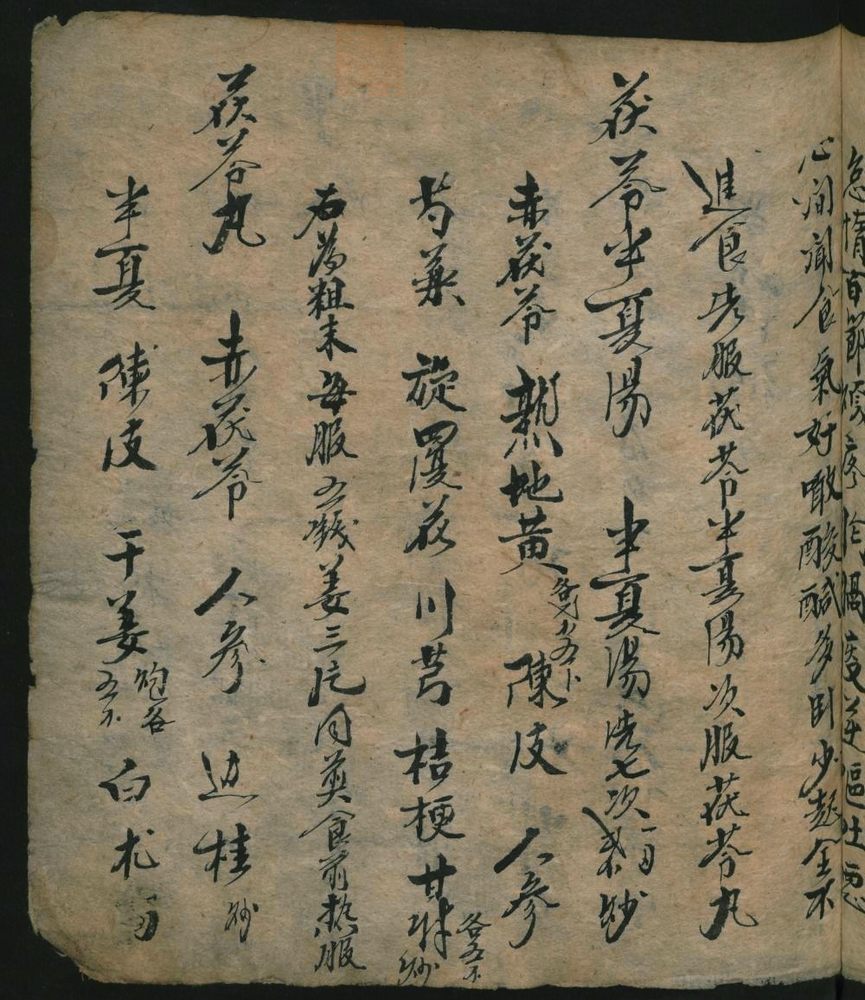 怠惰百節煩疼作渴痰逆嘔吐惡
心闻闻食氣好噉酸醎多卧少起全不
進食先服茯苓半夏湯次服茯苓丸
茯苓半夏湯 半夏湯洗七次一两 炒
赤茯苓 熟地黄 陳皮 人參
芍薬 旋覆花 川芎 桔梗 甘草 炒 各五
右為粗末每服五錢姜三片同煎食前热服
茯苓丸 赤茯苓 人參 边桂 炒
半夏 陳皮 干姜 炮各五 白朮